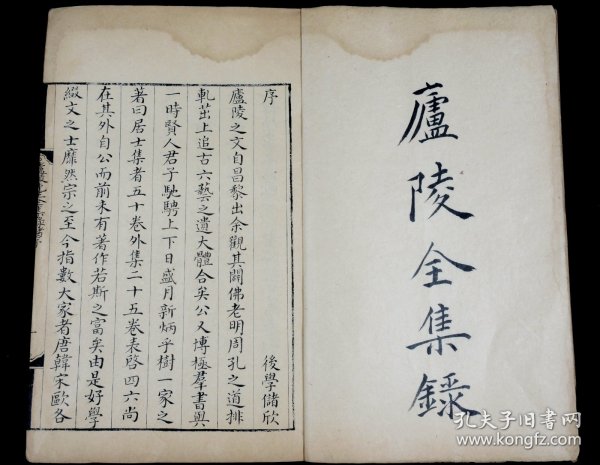 廬陵全集錄
序
後學儲欣
廬陵之文自昌黎出余觀其闢佛老明周孔之道排
軋茁上追古六藝之遺大體合矣公又博極羣書與
一時賢人君子馳騁上下日盛月新炳乎樹一家之
著曰居士集者五十卷外集二十五卷表啓四六尚
在其外自公而前未有著作若斯之富矣由是好學
綴文之士靡然宗之至今指數大家者唐韓宋歐各
孔夫子旧书网
www.kongfz.com